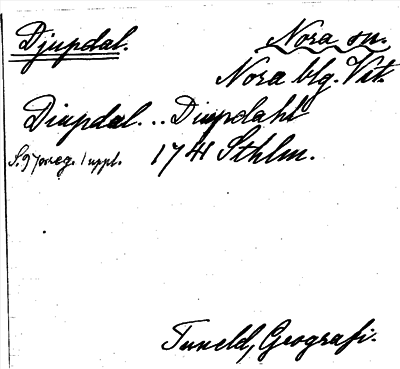 Djupdal. Nora sn.
Nora blg. Vst.
Diupdal... Diupdahl
S. 97 o. reg. 1 uppl. 1741 Sthlm.
Tuneld, Geografi.